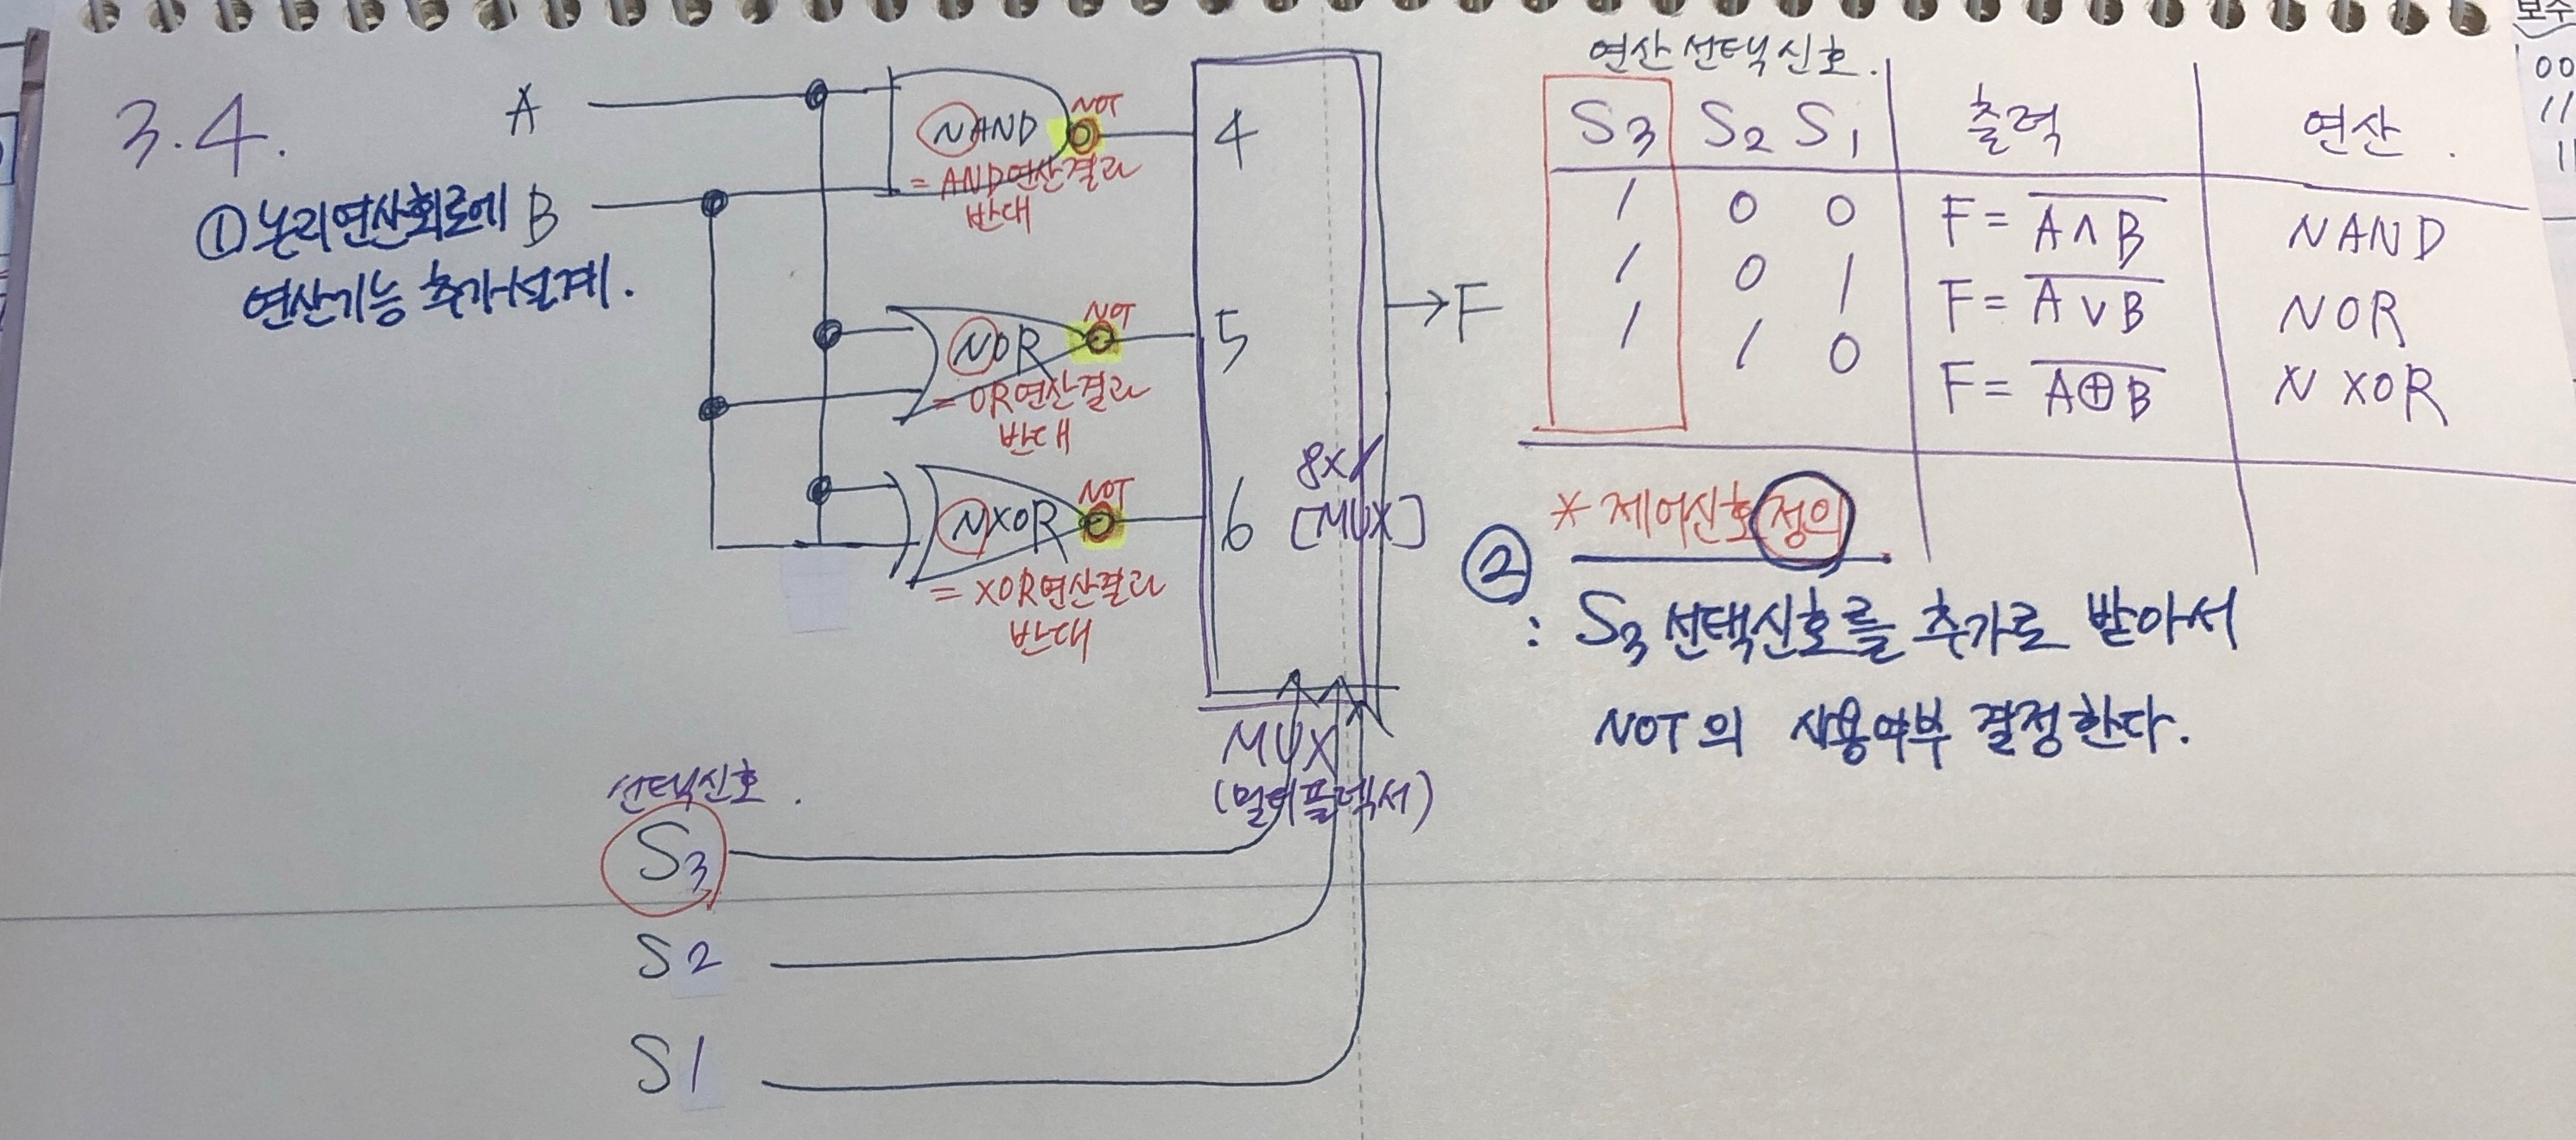 3.4.
① 논리연산회로에
연산기능 추가설계.
A
B
NAND
NOT
= AND연산결과
반대
NOR
NOT
= OR연산결과
반대
NXOR
NOT
= XOR연산결과
반대
4
5
6
8x1
[MUX]
F
MUX
(멀티플렉서)
선택신호.
S3
S2
S1
연산선택신호.
S3 S2 S1 출력 연산.
1 0 0 F = \overline{A∧B} NAND
1 0 1 F = \overline{A∨B} NOR
1 1 0 F = \overline{A⊕B} NXOR
* 제어신호 정의
②
: S3 선택신호를 추가로 받아서
NOT의 사용여부 결정한다.
보수
00
11
11